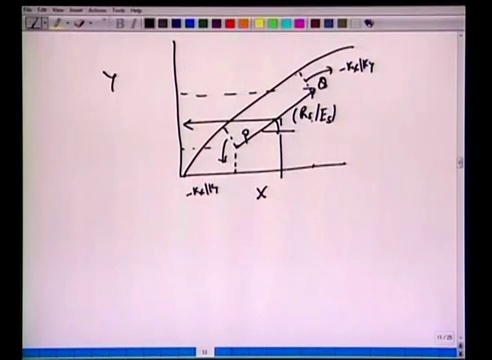 File Edit View Insert Actions Tools Help
Y
-Kx/Ky
Q
(Rs/Es)
P
-Kx/Ky
X
11
11/25